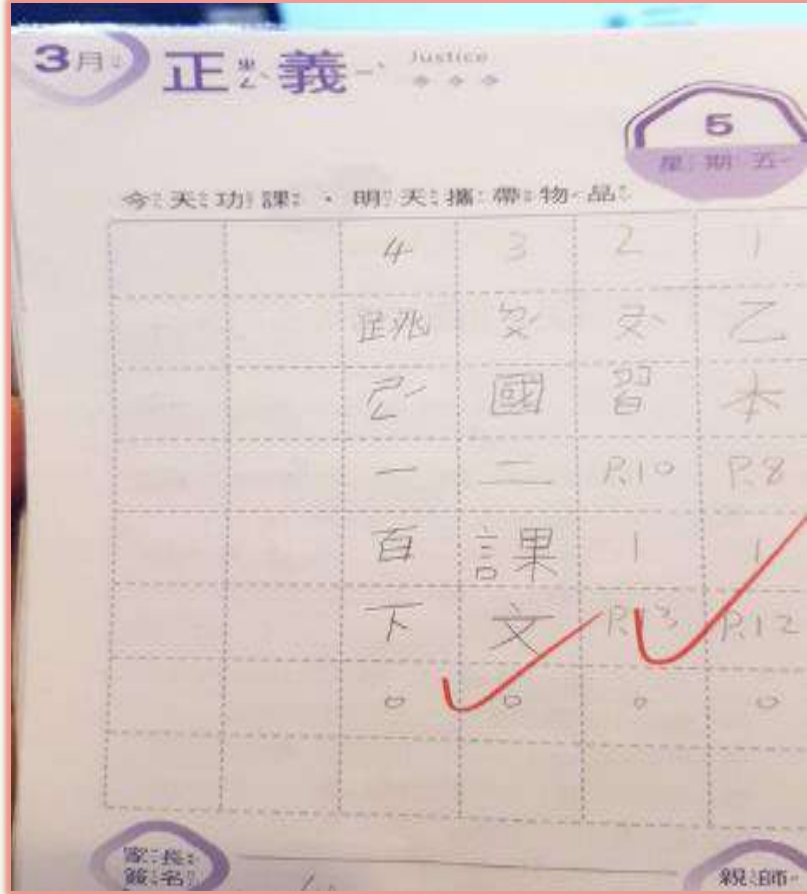 3月 正ㄓㄥˋ義ㄧˋ Justice
5
星期五
今天功課・明天攜帶物品
1乙本P.8|P.12。
2習P.10|P.13。
3國二課文。
4跳ㄕㄥˊ一百下。
家長
簽名
親師